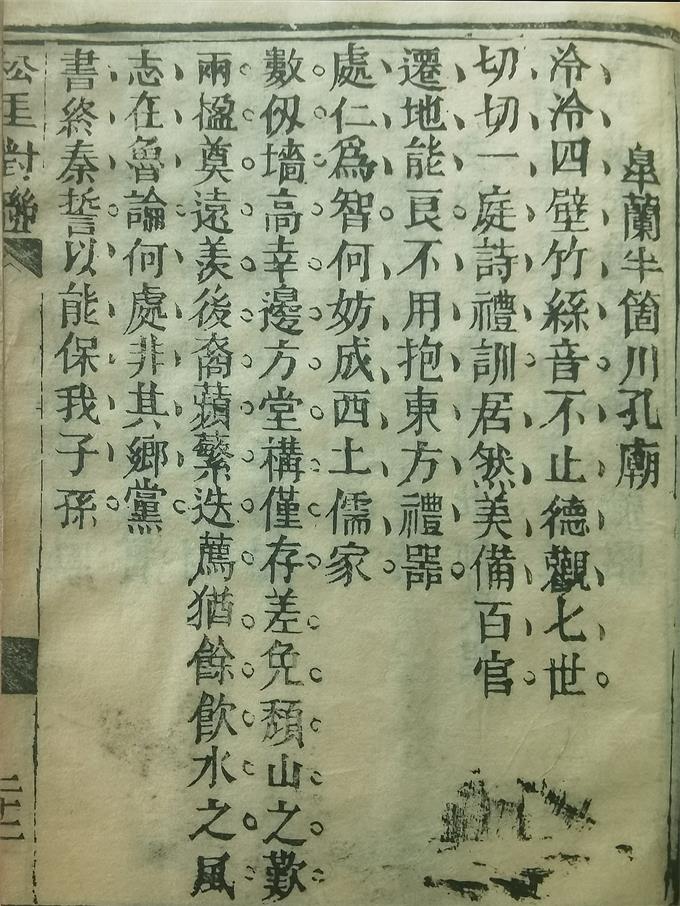 皐蘭半箇川孔廟
泠泠四壁竹絲音不止德觀七世
切切一庭詩禮訓居然美備百官
遷地能良不用抱東方禮器
處仁爲智何妨成西土儒家
數仭墻高幸邊方堂構僅存差免頽山之歎
兩楹奠遠羨後裔蘋蘩迭薦猶餘飮水之風
志在魯論何處非其鄉黨
書終秦誓以能保我子孫
對聯
二十二